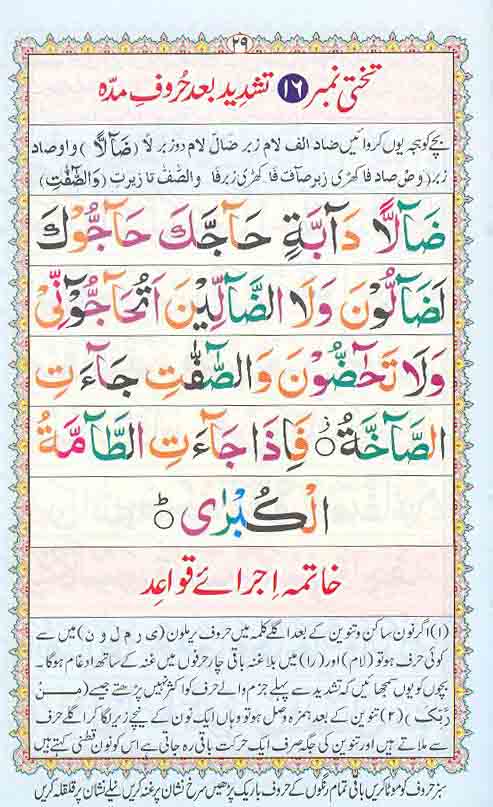 ۲۹
تختی نمبر ۱۶ تشدید بعد حُروفِ مدّہ
بچے کو ہجے یوں کروائیں ضاد الف لام زبر ضَآلّ لام دو زبر لاً (ضَآلًّا) واو صاد
زبر (وَصّ صاد فا کھڑی زبر صآفّ فا کھڑی زبر فا والصّٰٓفّٰ تا زیر تِ (وَالصّٰٓفّٰتِ)
ضَآلًّا دَآبَّةٍ حَآجَّكَ حَآجُّوْكَ
لَضَآلُّوْنَ وَلَا الضَّآلِّيْنَ اَتُحَآجُّوْٓنِّىْ
وَلَا تَحٰٓضُّوْنَ وَالصّٰٓفّٰتِ جَآءَتِ
الصَّآخَّةُ ۝ ز فَاِذَا جَآءَتِ الطَّآمَّةُ
الْكُبْرٰى ۝ ط
خاتمہ اِجرائے قواعِد
(۱) اگر نون ساکن و تنوین کے بعد اگلے کلمہ میں حروف یرملون (ی ر م ل و ن) میں سے
کوئی حرف ہو تو (لام) اور (را) میں بلا غنہ باقی چار حرفوں میں غنہ کے ساتھ ادغام ہوگا۔
بچوں کو یوں سمجھائیں کہ تشدید سے پہلے جزم والے حرف کو اکثر نہیں پڑھتے جیسے (مِنْ
رَّبِّكَ) (۲) تنوین کے بعد ہمزہ وصل ہو تو وہاں ایک نون کے نیچے زیر لگا کر اگلے حرف
سے ملاتے ہیں اور تنوین کی جگہ صرف ایک حرکت باقی رہ جاتی ہے اس کو نون قطنی کہتے ہیں
سبز حروف کو موٹا کریں باقی تمام رنگوں کے حروف باریک پڑھیں سرخ نشان پر غنہ کریں نیلے نشان پر قلقلہ کریں